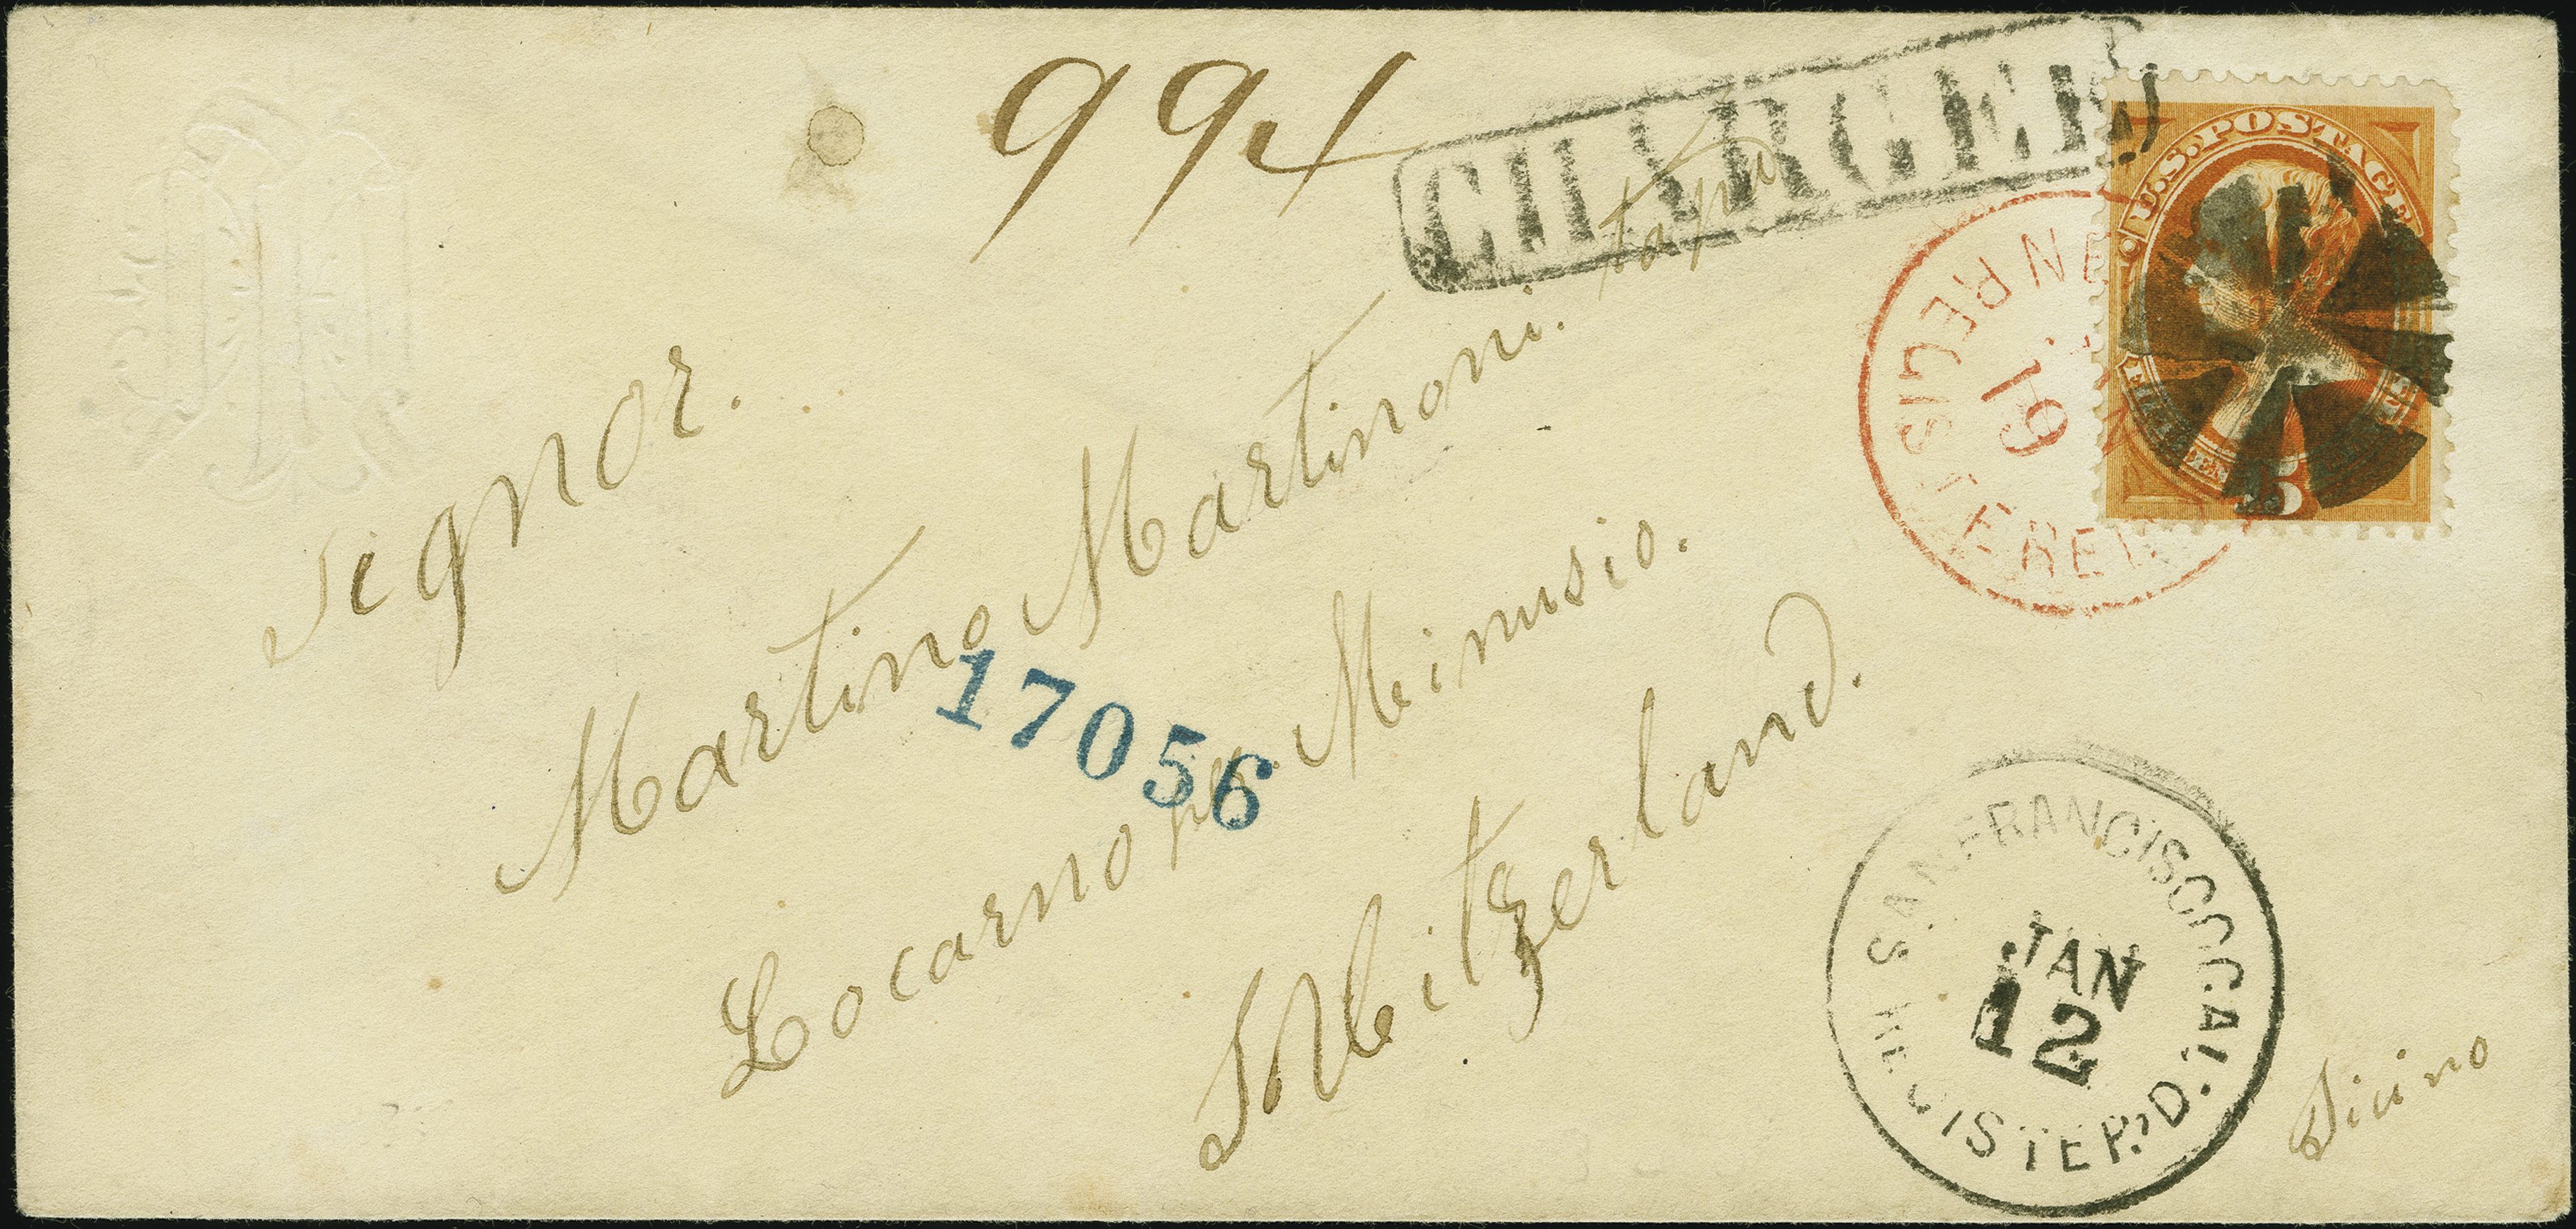 994
CHARGÉ
U.S. POSTAGE
15
N
REGISTERED
19
Signor.
Martino Martinoni.
17056
Locarno per Minusio.
Switzerland.
SAN FRANCISCO CAL.
JAN
12
REGISTER'D.
Ticino